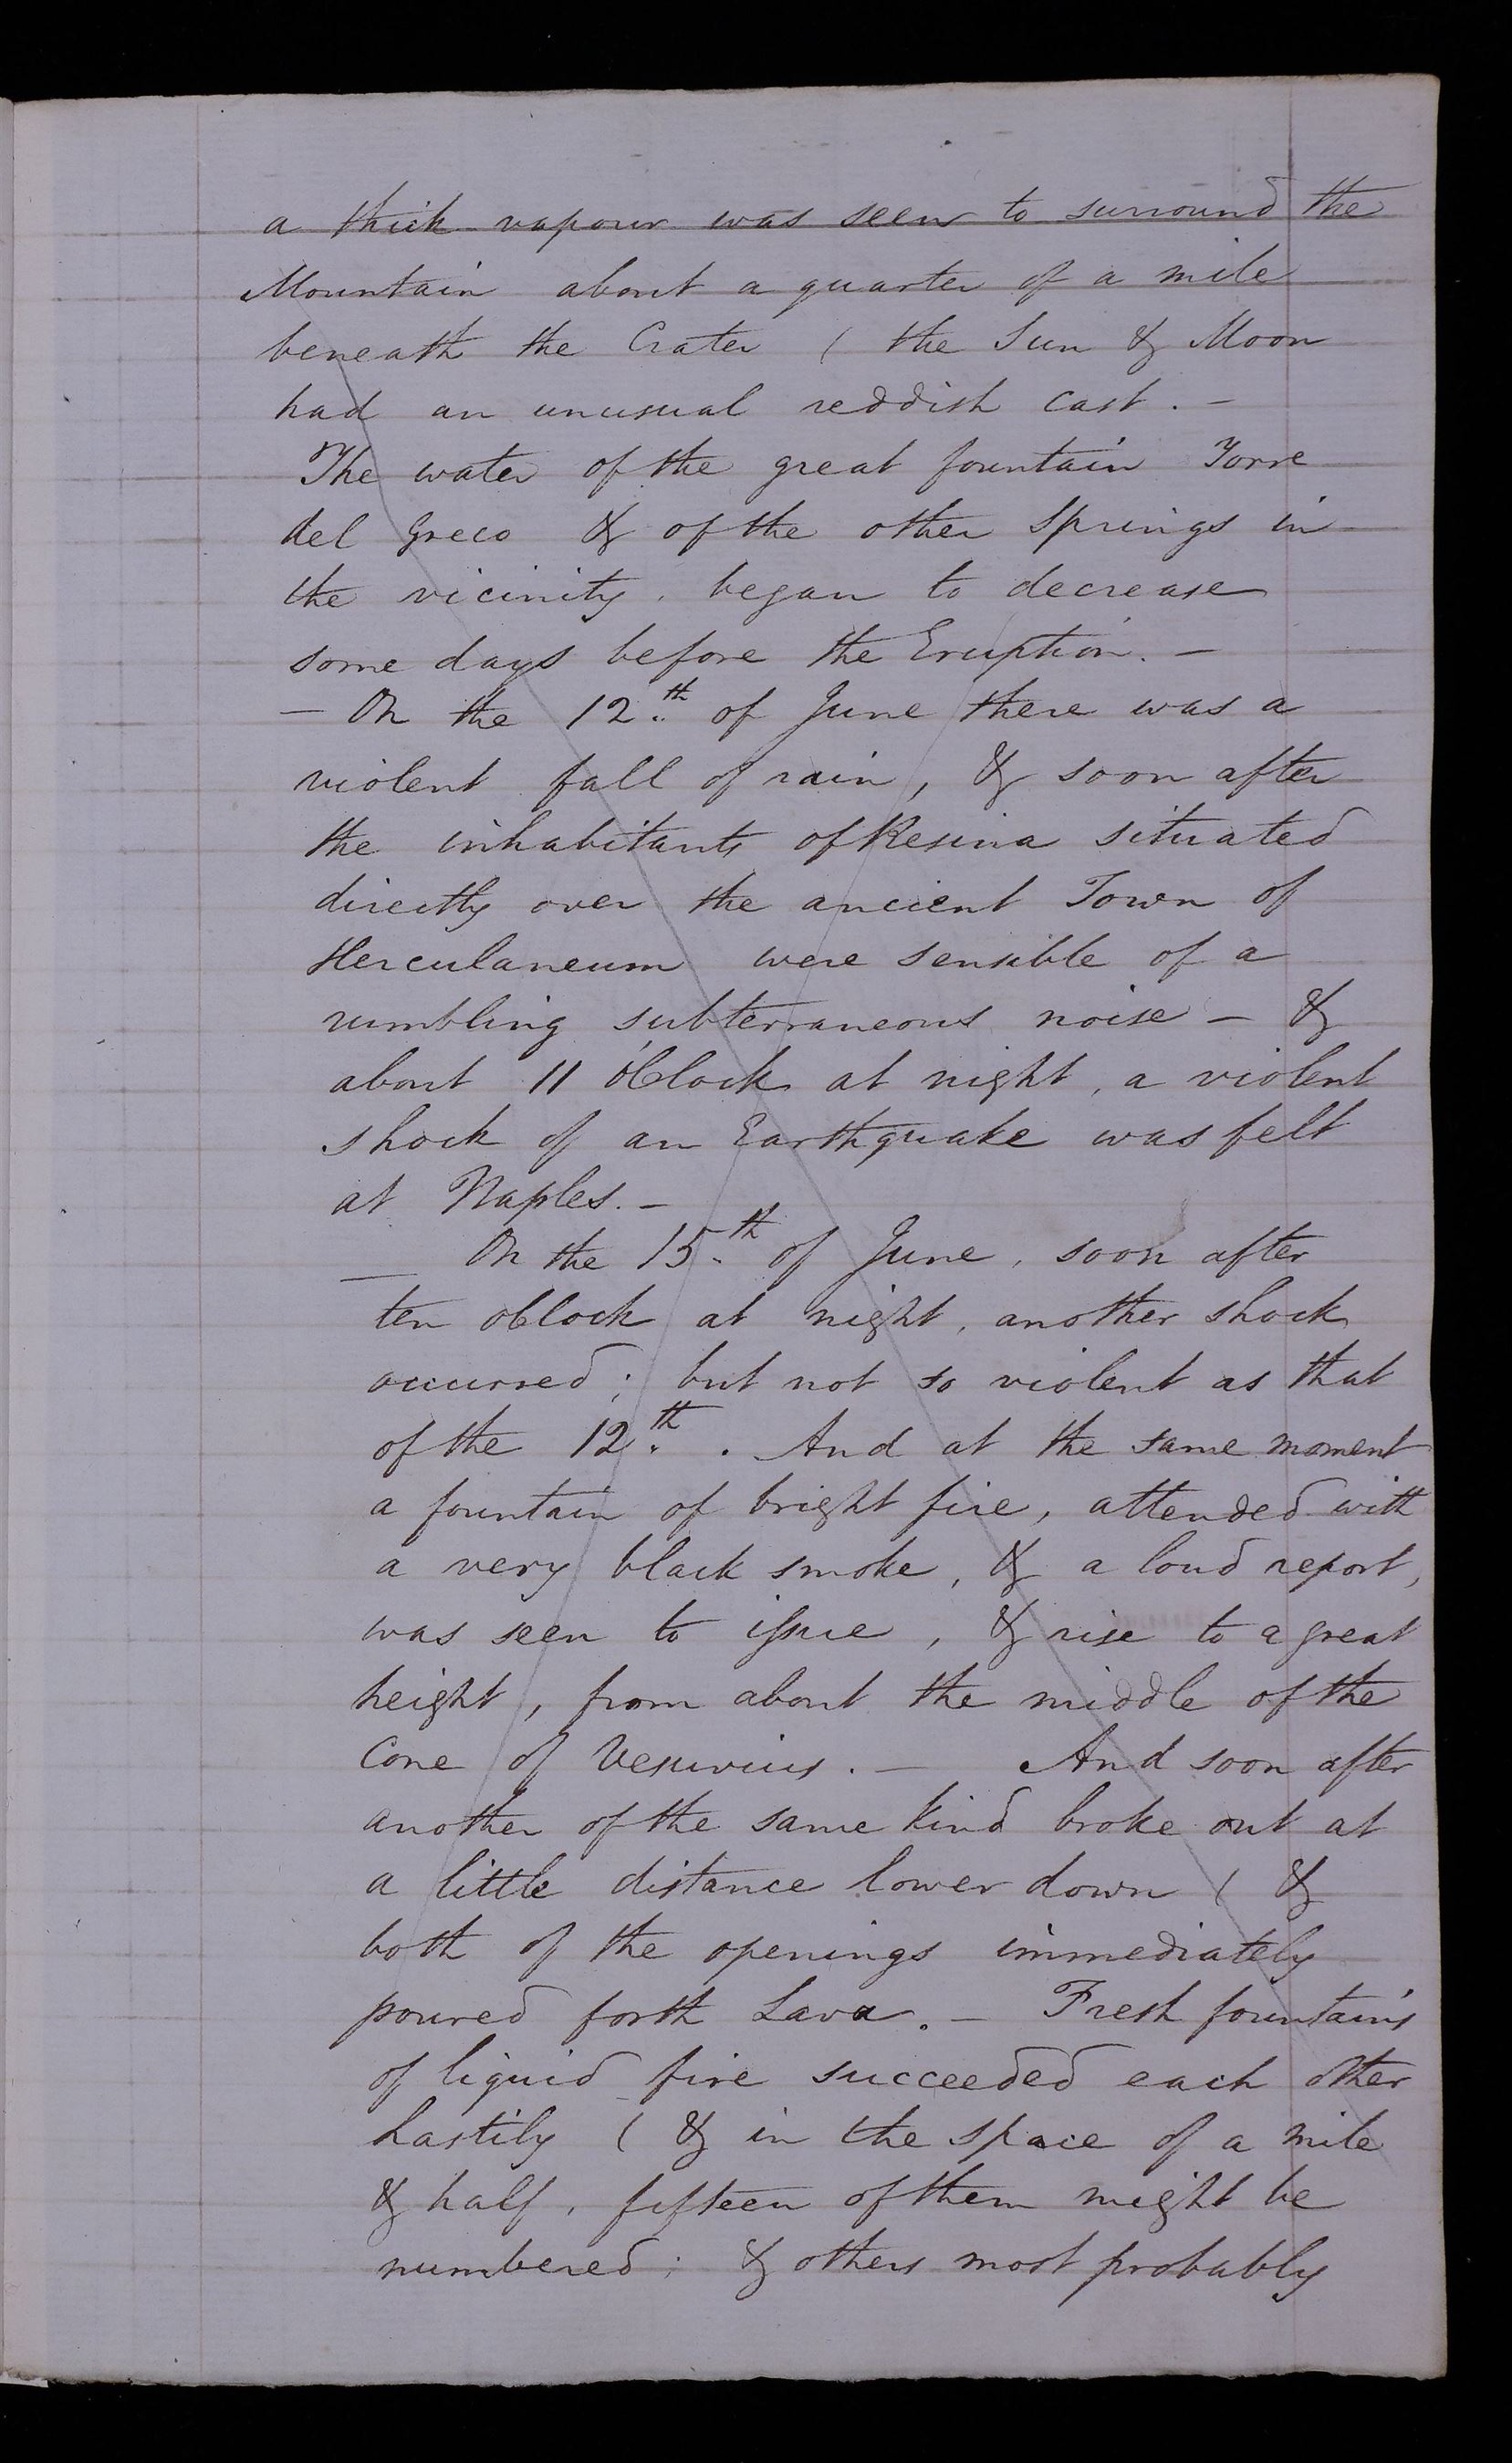 a thick vapour was seen to surround the
Mountain about a quarter of a mile
beneath the Crater ( the Sun & Moon
had an unusual reddish cast. —
The water of the great fountain Torre
del Greco & of the other Springs in
the vicinity, began to decrease
some days before the Eruption. —
— On the 12th of June there was a
violent fall of rain, & soon after
the inhabitants of Resina situated
directly over the ancient Town of
Herculaneum were sensible of a
rumbling subterraneous noise — &
about 11 o'Clock at night, a violent
shock of an Earthquake was felt
at Naples. —
— On the 15th of June, soon after
ten oClock at night, another shock
occurred; but not so violent as that
of the 12th. And at the same moment
a fountain of bright fire, attended with
a very black smoke, & a loud report,
was seen to issue, & rise to a great
height, from about the middle of the
Cone of Vesuvius. — And soon after
another of the same kind broke out at
a little distance lower down ( &
both of the openings immediately
poured forth Lava. — Fresh fountains
of liquid fire succeeded each other
hastily ( & in the space of a mile
& half, fifteen of them might be
numbered; & others most probably